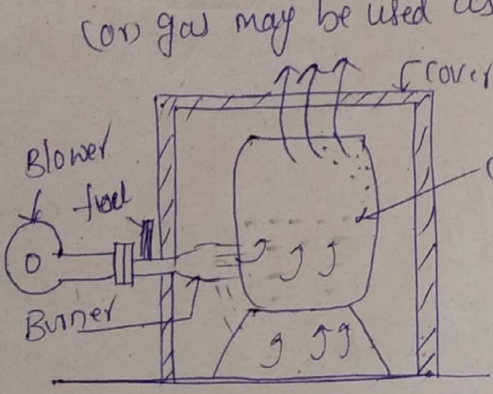 (or) gas may be used as
Cover
Blower
fuel
Burner